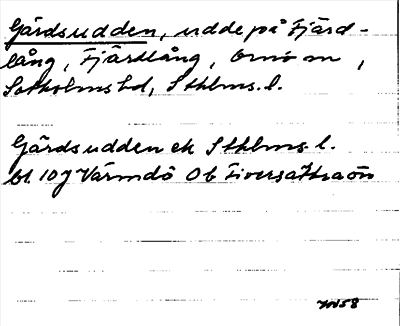 Gårdsudden, udde på Fjärd-
lång, Fjärdlång, Ornö sn,
Sotholms hd, Sthlms. l.
Gårdsudden ek Sthlms l.
bl. 107 Värmdö Ob Fiversätraön